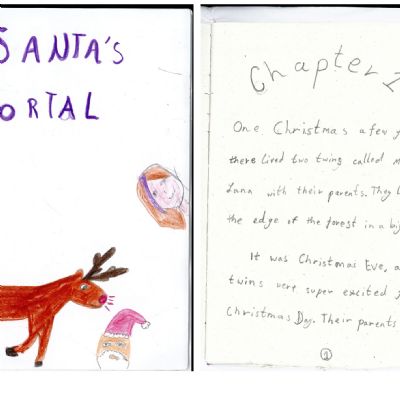 SANTA'S
ORTAL
Chapter 1
One Christmas a few
there lived two twins called
Lana with their parents. They
the edge of the forest in a
It was Christmas Eve,
twins were super excited
Christmas Day. Their parents
2